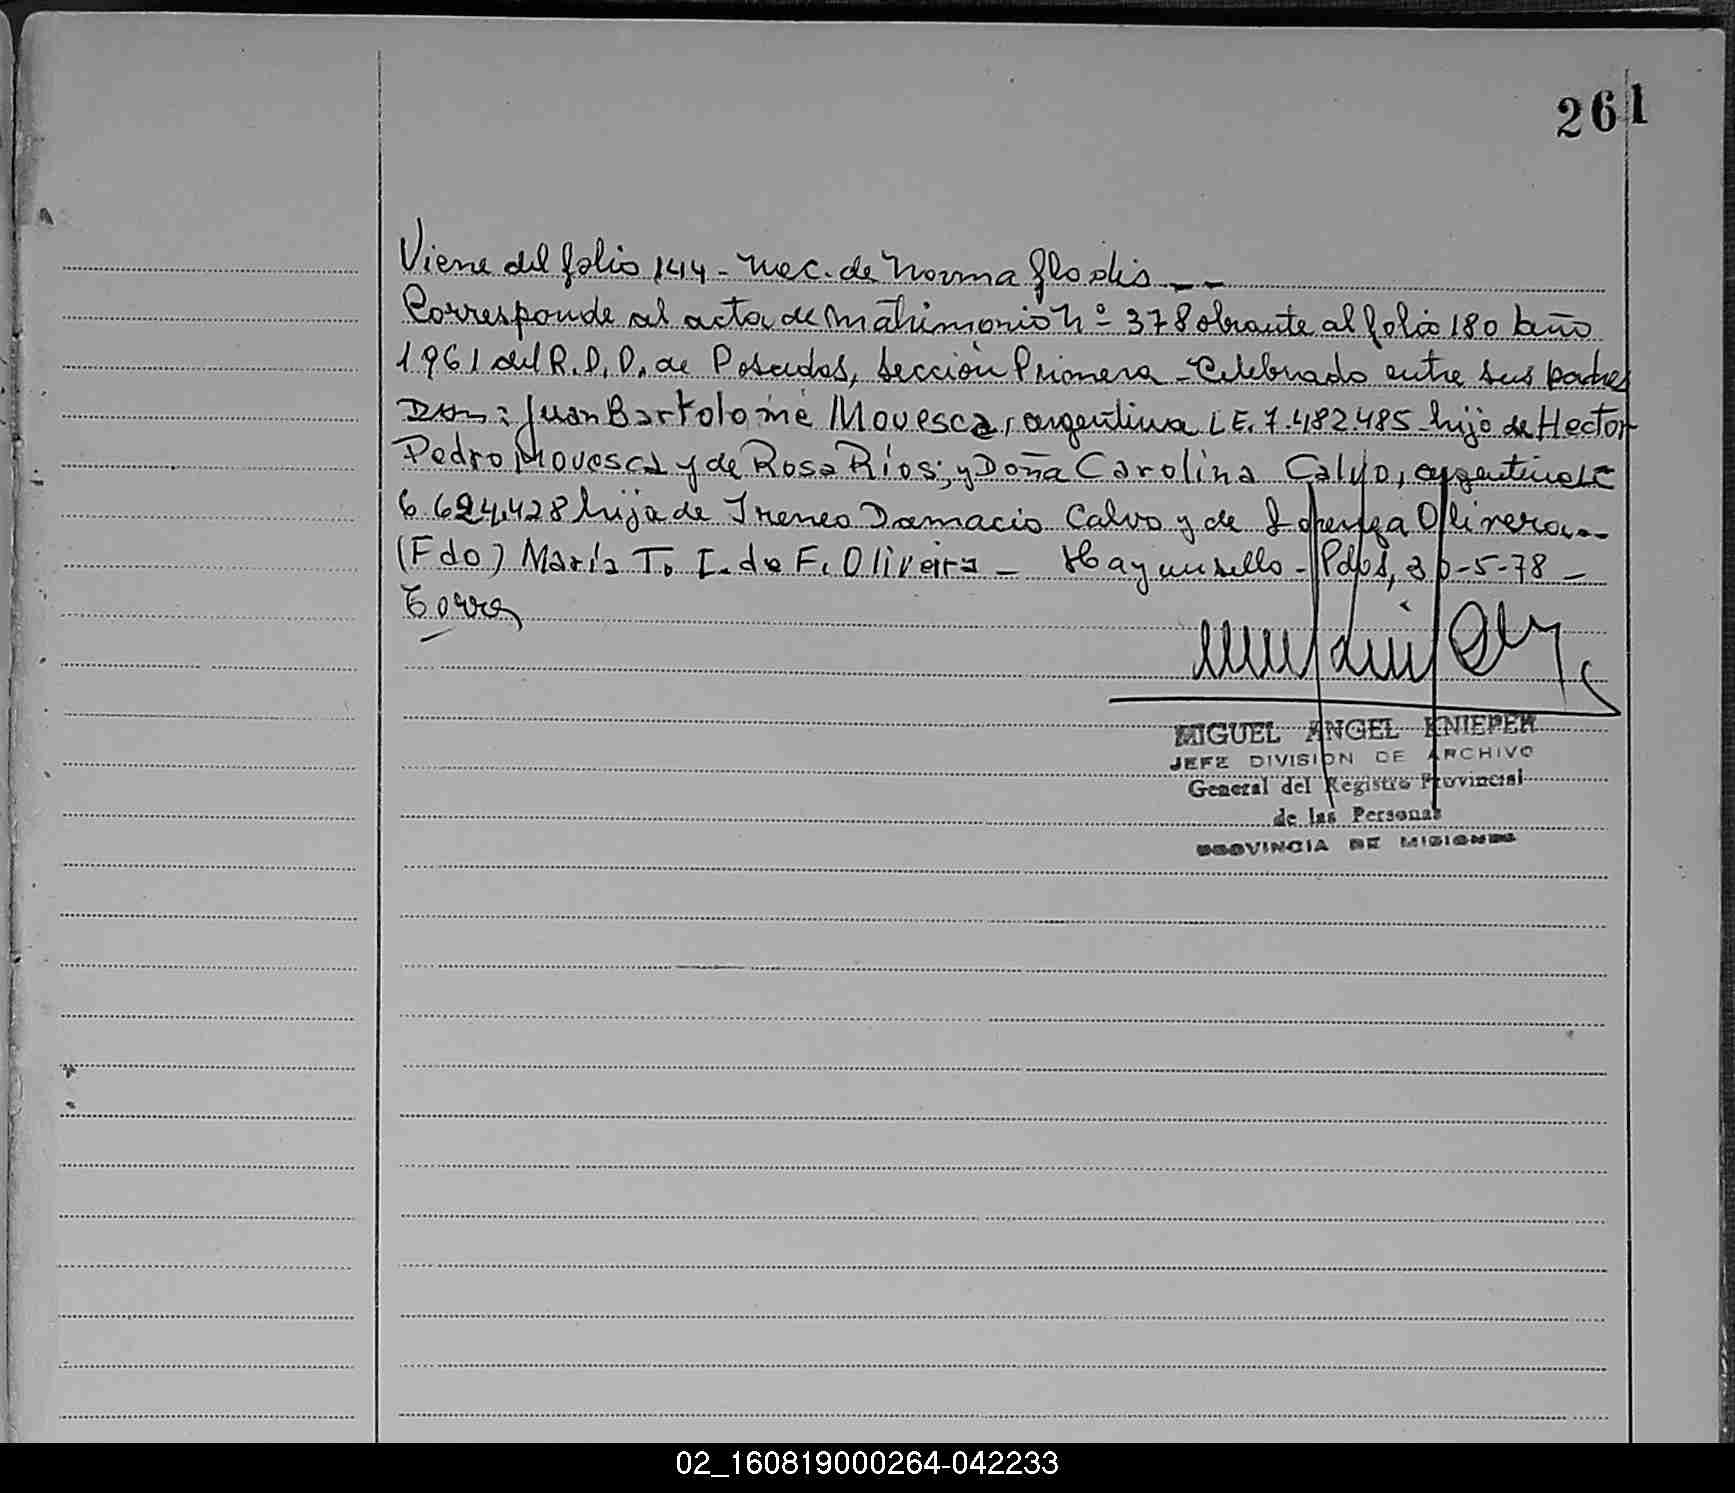 261
Viene del folio 144 - Nac. de Norma Glodis - -
Corresponde al acta de Matrimonio Nº 378 obrante al folio 180 año
1961 del R.P.P. de Posadas, Sección Primera - Celebrado entre sus padres
Don: Juan Bartolomé Movesca, argentino LE. 7.482.485 hijo de Hector
Pedro Movesca y de Rosa Ríos; y Doña Carolina Calvo, argentina LC
6.624.428 hija de Ireneo Damacio Calvo y de Lorenza Olivera --
(Fdo) María T. I. de F. Oliveira - Hay un sello - Pdas, 30-5-78 -
MIGUEL ANGEL KNIEPER
JEFE DIVISION DE ARCHIVO
General del Registro Provincial
de las Personas
PROVINCIA DE MISIONES
02_160819000264-042233